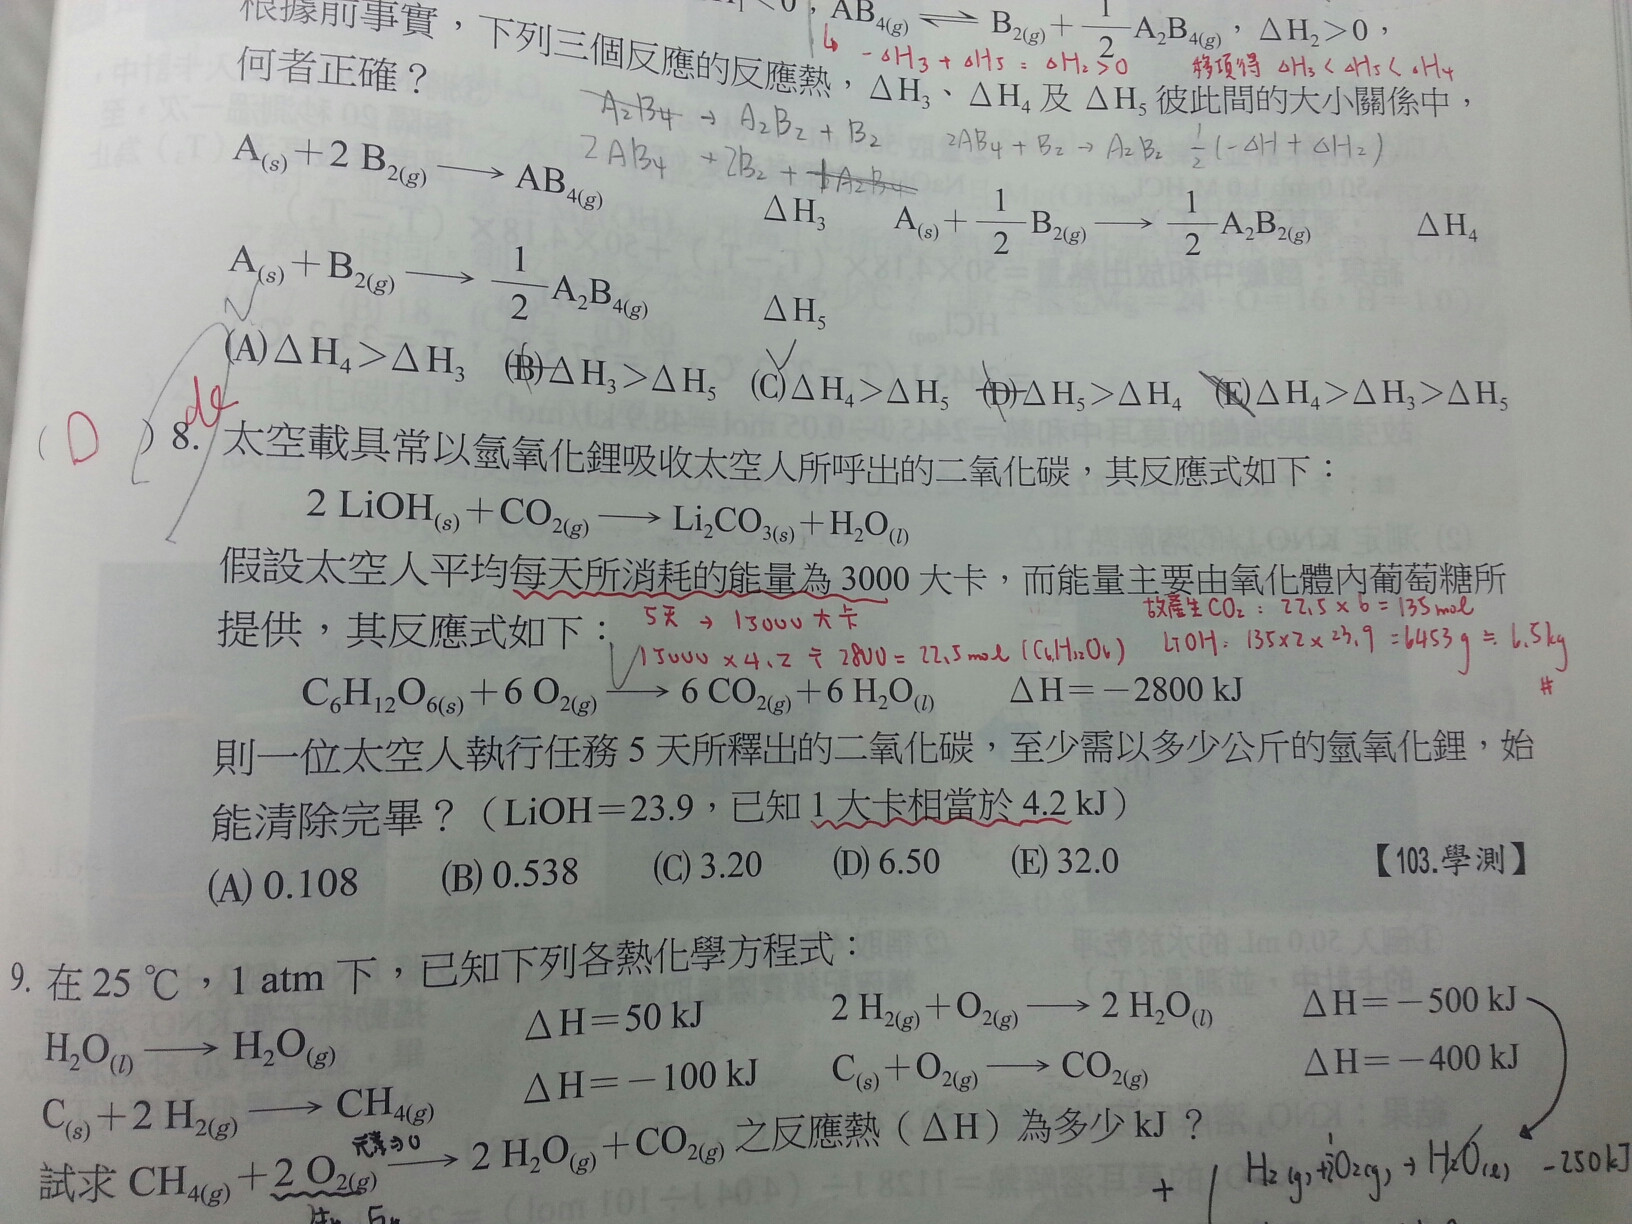 根據前事實，下列三個反應的反應熱，ΔH₃、ΔH₄ 及 ΔH₅ 彼此間的大小關係中，
AB₄(g) ⇌ B₂(g) + 1/2 A₂B₄(g)，ΔH₂>0，
↳ -ΔH₃ + ΔH₅ = ΔH₂>0 移項得 ΔH₃ < ΔH₅ < ΔH₄
何者正確？
A₂B₄ → A₂B₂ + B₂ 2AB₄ + B₂ → A₂B₂ 1/2 (-ΔH + ΔH₂)
2AB₄ + 2B₂ +
A(s) + 2 B₂(g) ⟶ AB₄(g) ΔH₃ A(s) + 1/2 B₂(g) ⟶ 1/2 A₂B₂(g) ΔH₄
A(s) + B₂(g) ⟶ 1/2 A₂B₄(g) ΔH₅
(A) ΔH₄>ΔH₃ (B) ΔH₃>ΔH₅ (C) ΔH₄>ΔH₅ (D) ΔH₅>ΔH₄ (E) ΔH₄>ΔH₃>ΔH₅
( D ) 8. 太空載具常以氫氧化鋰吸收太空人所呼出的二氧化碳，其反應式如下：
2 LiOH(s) + CO₂(g) ⟶ Li₂CO₃(s) + H₂O(l)
假設太空人平均每天所消耗的能量為 3000 大卡，而能量主要由氧化體內葡萄糖所
故產生CO₂：22.5 × 6 = 135 mol
提供，其反應式如下：
5天 → 15000 大卡
15000 × 4.2 ÷ 2800 = 22.5 mol (C₆H₁₂O₆) LiOH：135×2×23.9 = 6453 g ≒ 6.5 kg #
C₆H₁₂O₆(s) + 6 O₂(g) ⟶ 6 CO₂(g) + 6 H₂O(l) ΔH=−2800 kJ
則一位太空人執行任務 5 天所釋出的二氧化碳，至少需以多少公斤的氫氧化鋰，始
能清除完畢？（LiOH=23.9，已知 1 大卡相當於 4.2 kJ）
(A) 0.108 (B) 0.538 (C) 3.20 (D) 6.50 (E) 32.0 【103.學測】
9. 在 25 ℃，1 atm 下，已知下列各熱化學方程式：
H₂O(l) ⟶ H₂O(g) ΔH=50 kJ 2 H₂(g) + O₂(g) ⟶ 2 H₂O(l) ΔH=−500 kJ
C(s) + 2 H₂(g) ⟶ CH₄(g) ΔH=−100 kJ C(s) + O₂(g) ⟶ CO₂(g) ΔH=−400 kJ
試求 CH₄(g) + 2 O₂(g) ⟶ 2 H₂O(g) + CO₂(g) 之反應熱（ΔH）為多少 kJ？
H₂(g) + 1/2 O₂(g) → H₂O(l) -250 kJ
+